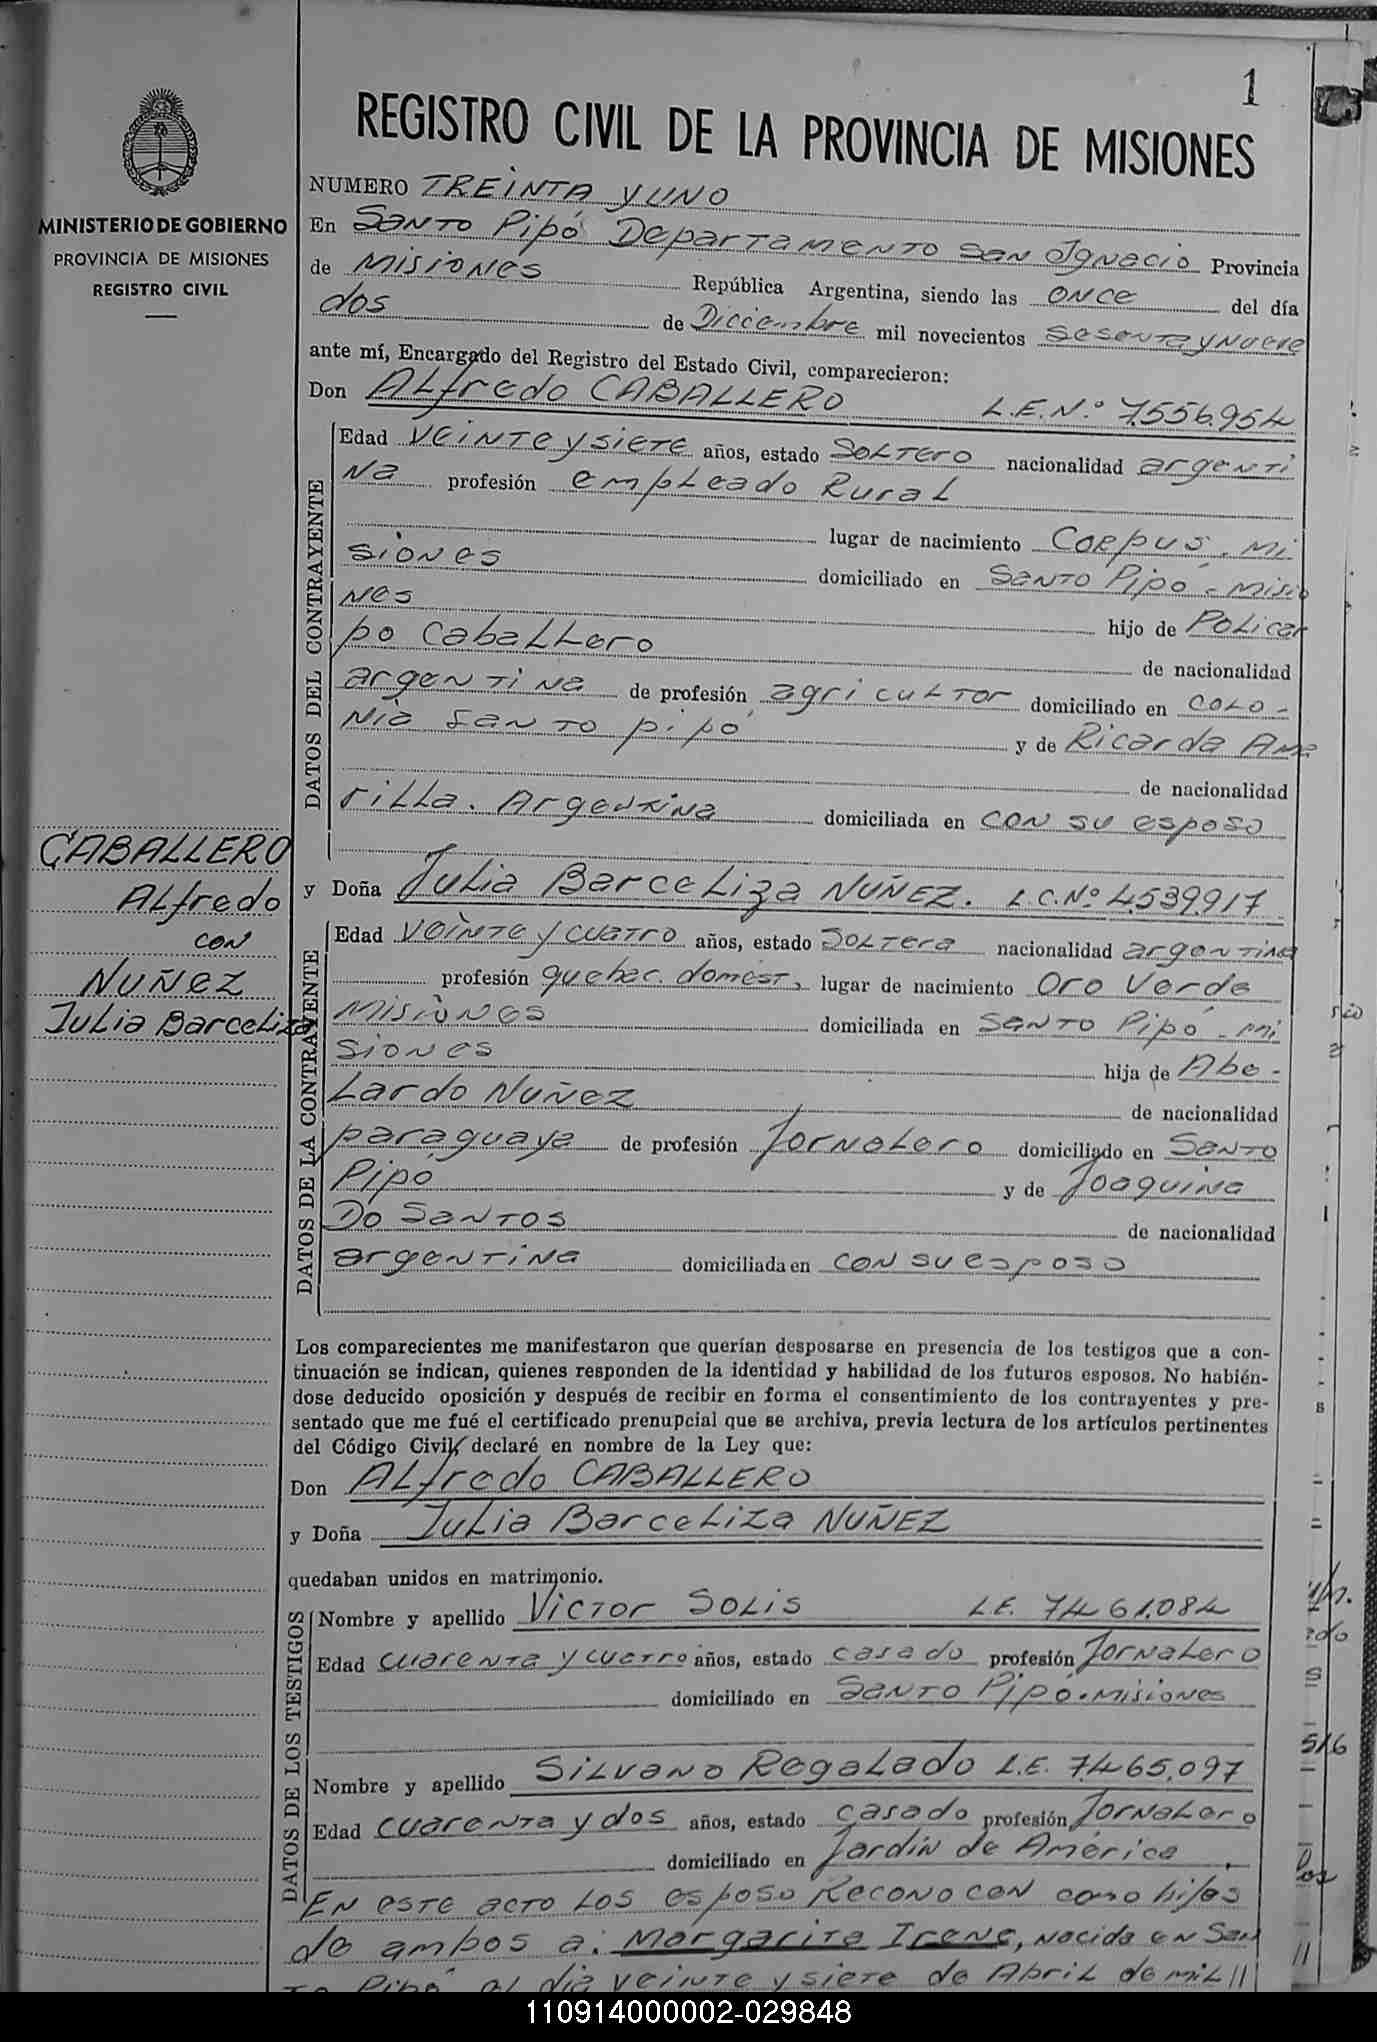 1
REGISTRO CIVIL DE LA PROVINCIA DE MISIONES
MINISTERIO DE GOBIERNO
PROVINCIA DE MISIONES
REGISTRO CIVIL
NUMERO TREINTA y UNO
En SANTO Pipó DepartAMENTO SAN Ignacio Provincia
de Misiones República Argentina, siendo las once del día
dos de Diciembre mil novecientos sesenta y nueve
ante mí, Encargado del Registro del Estado Civil, comparecieron:
Don Alfredo CABALLERO L.E.N.º 7.556.954
DATOS DEL CONTRAYENTE
Edad veinte y siete años, estado soltero nacionalidad argenti
na profesión empleado Rural
lugar de nacimiento Corpus. Mi
siones domiciliado en Santo Pipó - Misio
nes hijo de Policar
po Caballero de nacionalidad
argentina de profesión agricultor domiciliado en Colo-
nia Santo pipó y de Ricarda Ama
de nacionalidad
rilla. Argentina domiciliada en con su esposo
CABALLERO
Alfredo
con
NUÑEZ
Julia Barceliza
y Doña Julia Barceliza NUÑEZ. L.C.Nº 4.539.917
DATOS DE LA CONTRAYENTE
Edad veinte y cuatro años, estado soltera nacionalidad argentina
profesión quehac. domést, lugar de nacimiento Oro Verde
Misiones domiciliada en Santo Pipó - Mi
siones hija de Abe-
lardo Nuñez de nacionalidad
paraguaya de profesión Jornalero domiciliado en Santo
Pipó y de Joaquina
Do Santos de nacionalidad
argentina domiciliada en con su esposo
Los comparecientes me manifestaron que querían desposarse en presencia de los testigos que a con-
tinuación se indican, quienes responden de la identidad y habilidad de los futuros esposos. No habién-
dose deducido oposición y después de recibir en forma el consentimiento de los contrayentes y pre-
sentado que me fué el certificado prenupcial que se archiva, previa lectura de los artículos pertinentes
del Código Civil, declaré en nombre de la Ley que:
Don Alfredo CABALLERO
y Doña Julia Barceliza NUÑEZ
quedaban unidos en matrimonio.
DATOS DE LOS TESTIGOS
Nombre y apellido Victor Solis L.E. 7.461.084
Edad cuarenta y cuatro años, estado casado profesión Jornalero
domiciliado en Santo Pipó. Misiones
Nombre y apellido Silvano Regalado L.E. 7.465.097
Edad cuarenta y dos años, estado casado profesión Jornalero
domiciliado en Jardín de América.
En este acto los esposo Reconocen como hijos
de ambos a: Margarita Irene, nacida en San
to Pipó el dia veinte y siete de Abril de mil //
110914000002-029848